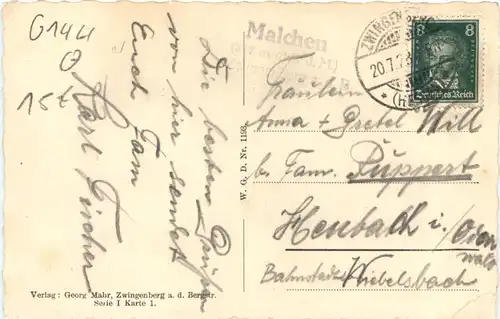 G1441
15t
Die besten Grüße
von hier sendet
Euch Fam
Karl Fischer
W. G. D. Nr. 1193
Malchen
ZWINGEN
20.7.2
(HE
8 8
Deutsches Reich
Fräulein
Anna + Gretel Will
bei Fam. Puppert
Heubach i/Oden
wald
Bahnstation Wiebelsbach
Verlag: Georg Mahr, Zwingenberg a. d. Bergstr.
Serie I Karte 1.